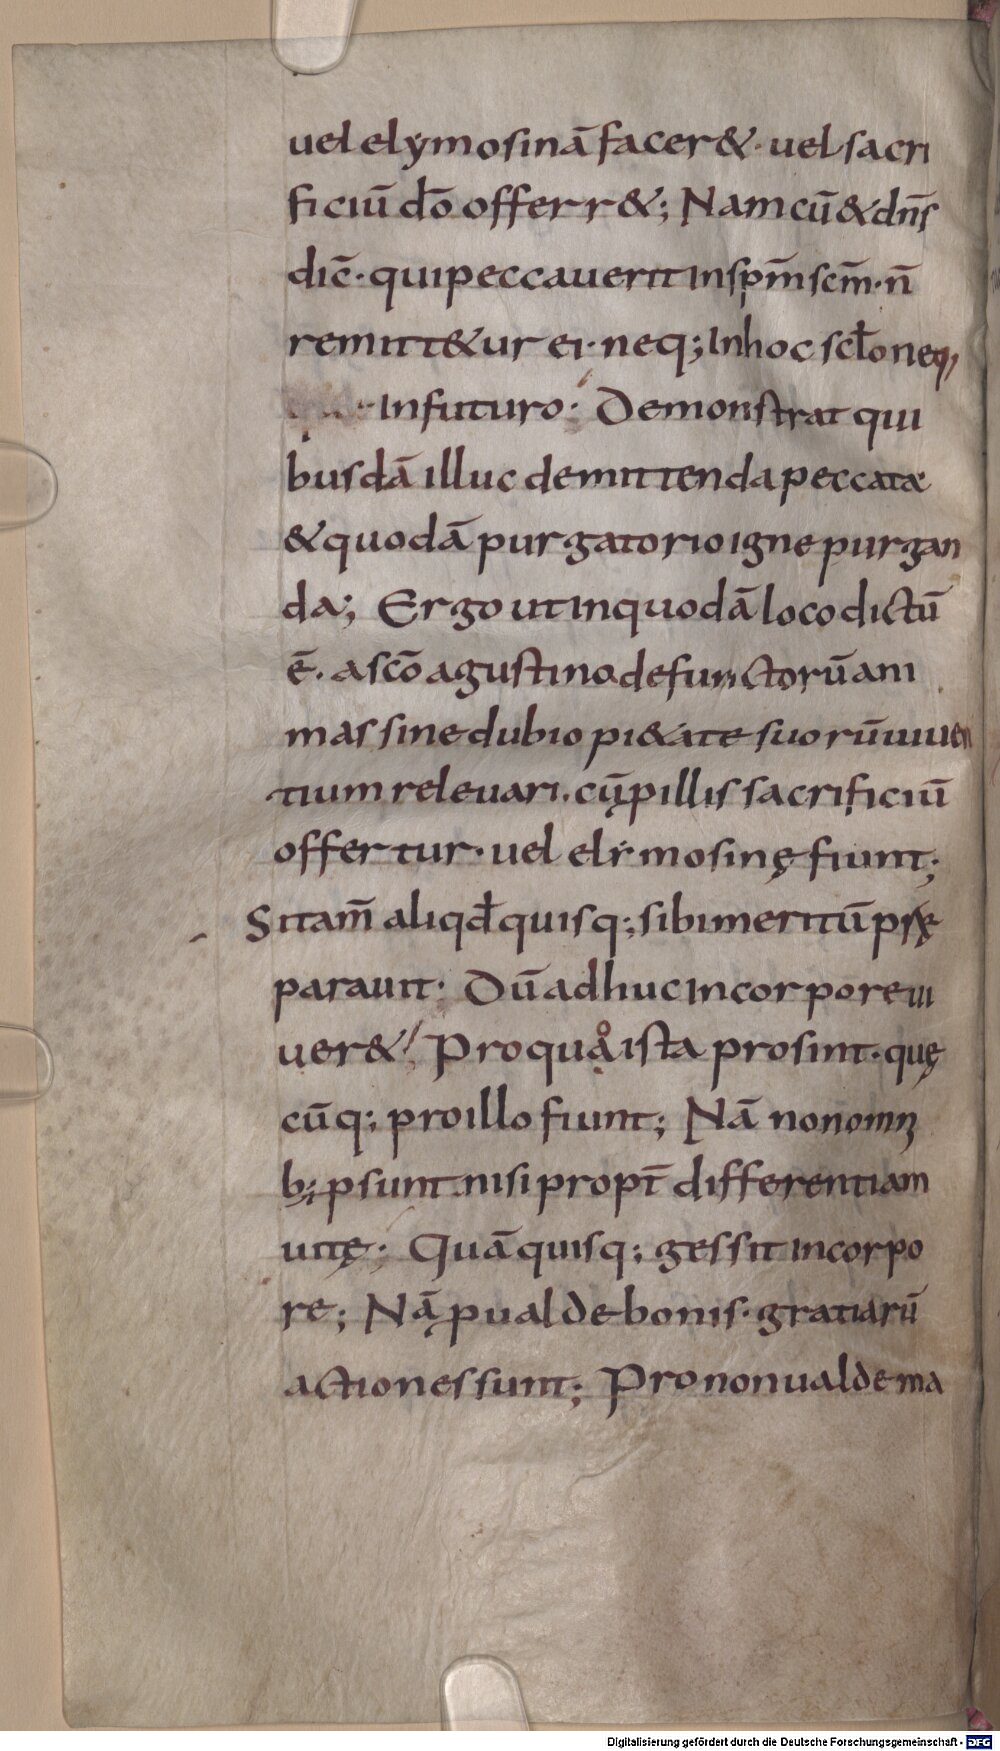 uel elẏmosinā facer& · uel sacri
ficiū dō offerr&; Nam cū & dn̄s
dic̄ · qui peccauerit in sp̄m sc̄m · n̄
remitt&ur ei · neq; In hoc sc̄lo neq,
In futuro · Demonstrat qui
busdā illuc demittenda peccata
& quodā purgatorio igne purgan
da; Ergo ut in quodā loco dictū
ē · a sc̄o agustino defunctorū ani
mas sine dubio pi&ate suorū uiuen
tium releuari · cū p illis sacrificiū
offertur · uel elẏmosinę fiunt;
Si tam̄ aliqd̄ quisq; sibi meritū p se
parauit · Dū adhuc in corpore ui
uer& · Pro qua ista prosint · quę
cūq; pro illo fiunt; Nā non omni
b; psunt nisi propt̄ differentiam
uitę · Quā quisq; gessit in corpo
re; Nā p ualde bonis · gratiarū
actiones sunt; Pro non ualde ma
Digitalisierung gefördert durch die Deutsche Forschungsgemeinschaft - DFG